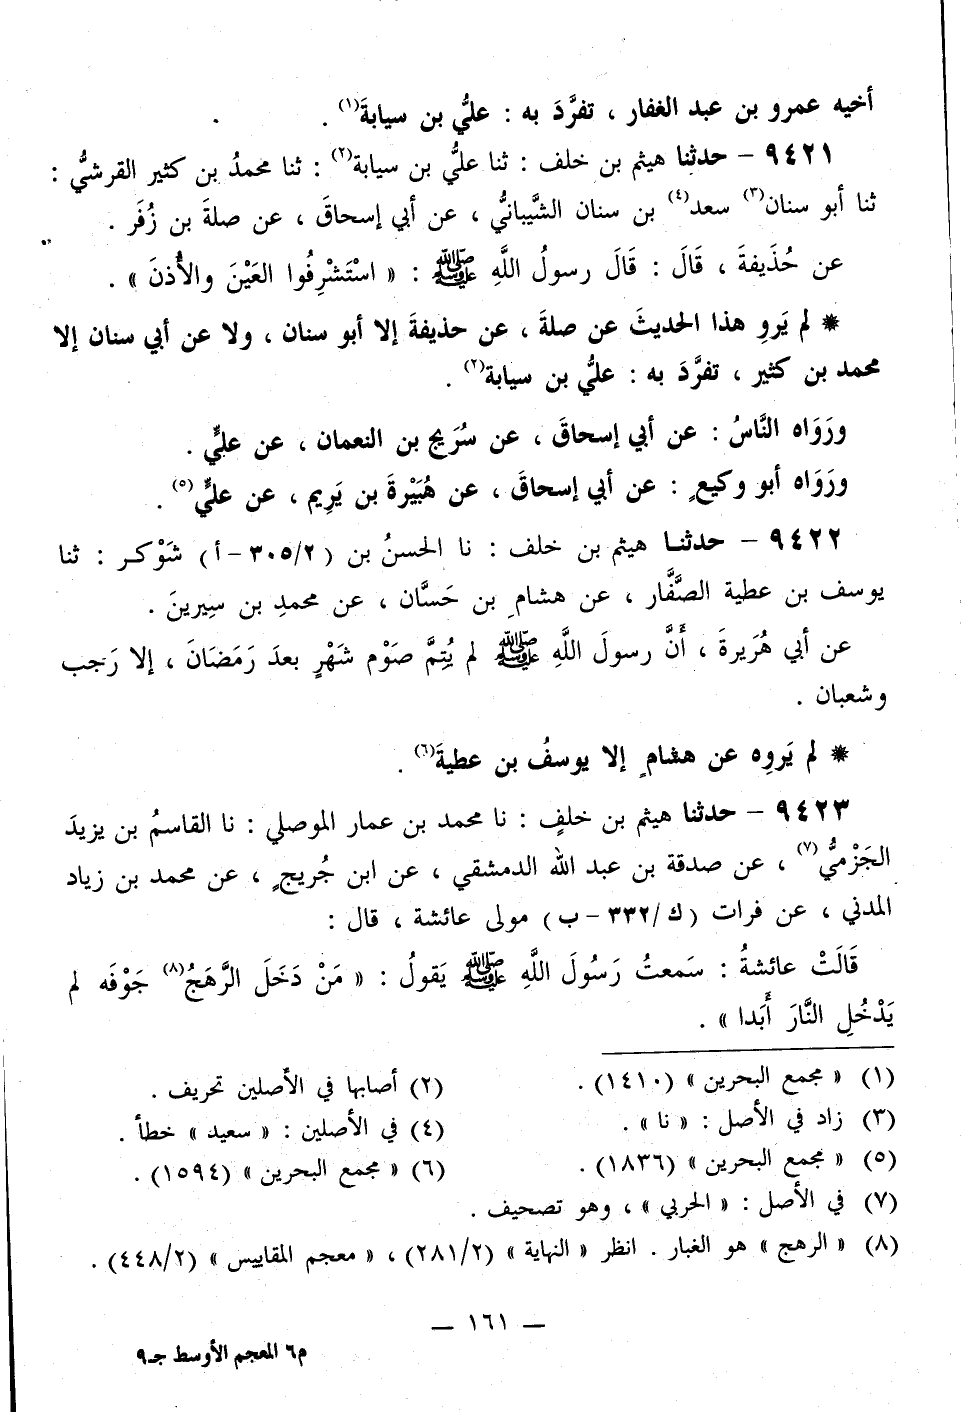 أخيه عمرو بن عبد الغفار ، تفرَّدَ به : عليُّ بن سيابةَ(١) .
٩٤٢١ – حدثنا هيثم بن خلف : ثنا عليُّ بن سيابة(٢) : ثنا محمدُ بن كثير القرشيُّ :
ثنا أبو سنان(٣) سعد(٤) بن سنان الشَّيبانيُّ ، عن أبي إسحاقَ ، عن صلةَ بن زُفَر .
عن حُذَيفةَ ، قَالَ : قَالَ رسولُ اللَّهِ ﷺ : « اسْتَشْرِفُوا العَيْنَ والأُذنَ » .
* لم يَروِ هذا الحديثَ عن صلةَ ، عن حذيفةَ إلا أبو سنان ، ولا عن أبي سنان إلا
محمد بن كثير ، تفرَّدَ به : عليُّ بن سيابة(٢) .
ورَوَاه النَّاسُ : عن أبي إسحاقَ ، عن سُرَيج بن النعمان ، عن عليٍّ .
ورَوَاه أبو وكيعٍ : عن أبي إسحاقَ ، عن هُبَيْرةَ بن يَرِيم ، عن عليٍّ(٥) .
٩٤٢٢ – حدثنـا هيثم بن خلف : نا الحسنُ بن ( ٣٠٥/٢ – أ ) شَوْكـر : ثنا
يوسف بن عطية الصَّفَّار ، عن هشامِ بن حَسَّان ، عن محمدِ بن سِيرينَ .
عن أبي هُرَيرةَ ، أَنَّ رسولَ اللَّهِ ﷺ لم يُتِمَّ صَوْم شَهْرٍ بعدَ رَمَضَانَ ، إلا رَجب
وشعبان .
* لم يَروِه عن هشامٍ إلا يوسفُ بن عطيةَ(٦) .
٩٤٢٣ – حدثنا هيثم بن خلفٍ : نا محمد بن عمار الموصلي : نا القاسمُ بن يزيدَ
الجَرْميُّ(٧) ، عن صدقة بن عبد الله الدمشقي ، عن ابن جُريجٍ ، عن محمد بن زياد
المدني ، عن فرات ( ك/٣٣٢ – ب ) مولى عائشة ، قال :
قَالَتْ عائشةُ : سَمعتُ رَسُولَ اللَّهِ ﷺ يَقولُ : « مَنْ دَخَلَ الرَّهَجُ(٨) جَوْفَه لم
يَدْخُلِ النَّارَ أَبَدا » .
(١) « مجمع البحرين » (١٤١٠) .
(٢) أصابها في الأصلين تحريف .
(٣) زاد في الأصل : « نا » .
(٤) في الأصلين : « سعيد » خطأ .
(٥) « مجمع البحرين » (١٨٣٦) .
(٦) « مجمع البحرين » (١٥٩٤) .
(٧) في الأصل : « الحربي » ، وهو تصحيف .
(٨) « الرهج » هو الغبار . انظر « النهاية » (٢٨١/٢) ، « معجم المقاييس » (٤٤٨/٢) .
— ١٦١ —
م٦ المعجم الأوسط جـ٩